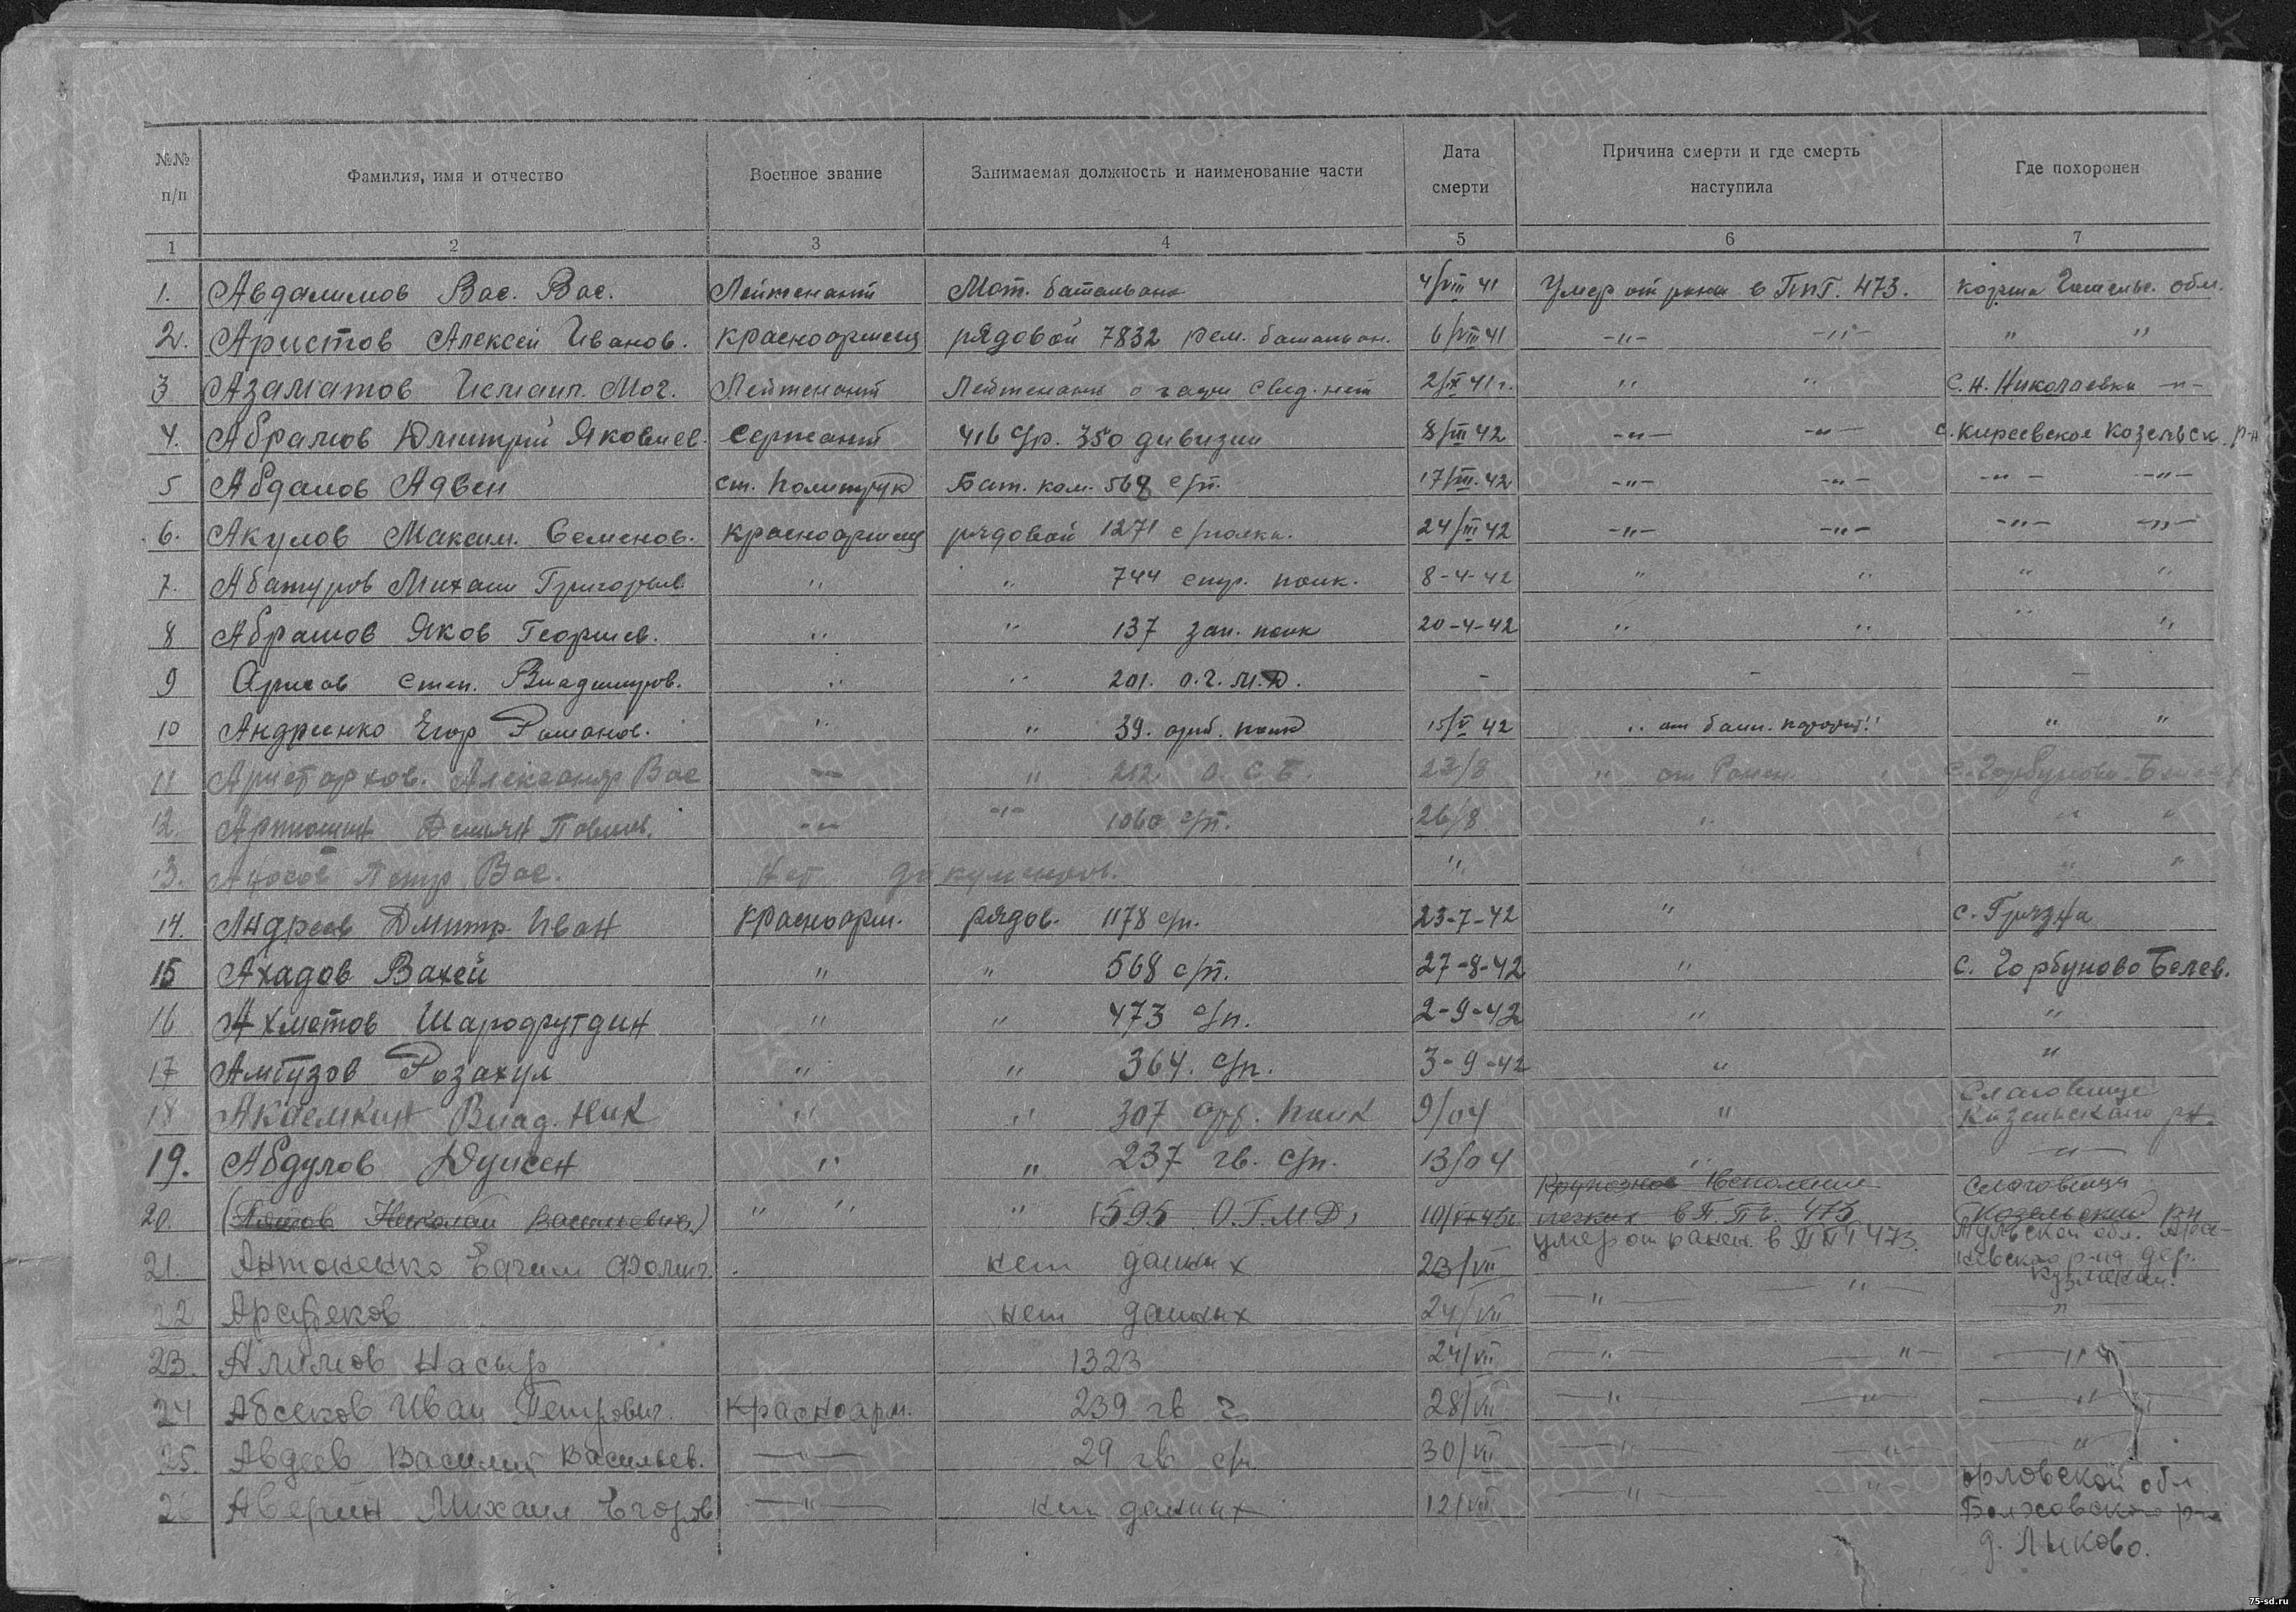 №№ п/п | Фамилия, имя и отчество | Военное звание | Занимаемая должность и наименование части | Дата смерти | Причина смерти и где смерть наступила | Где похоронен
1 | 2 | 3 | 4 | 5 | 6 | 7
1. Авдалимов Вас. Вас. Лейтенант Мот. батальона 4/VIII 41 Умер от ран в ППГ. 473. обл.
2. Аристов Алексей Иванов. Красноармеец рядовой 7832 рем. батальон. 6/VIII 41 -"- -"- " "
3 Азаматов Исмаил. Мог. Лейтенант Лейтенант о части свед. нет 2/IX 41 г. " " с. Н. Николаевка -"-
4. Абрамов Дмитрий Яковлев. Сержант 416 с/р. 350 дивизии 8/III 42 -"- -"- с. Киреевское Козельск. р-н
5 Абдалов Адвен ст. Политрук Бат. ком. 568 с/п. 17/III. 42 -"- -"- -"- -"-
6. Акулов Максим. Семенов. Красноармеец рядовой 1271 с/полка. 24/III 42 -"- -"- -"- -"-
7. Абатуров Михаил Григорьев. " " 744 стр. полк. 8-4-42 " " " "
8 Абрамов Яков Георгиев. " " 137 зап. полк 20-4-42 " " " "
9 Арисов Степ. Владимиров. " " 201. о.г.м.д. - - -
10 Андриенко Егор Романов. " " 39. арт. полк 15/V 42 " от " " "
11 Аристархов. Александр Вас -"- " 212. О. С. Б. 23/8 " от Ранен. " с. Горбуново
12. Артюшин Демьян Павлов. -"- -"- 1060 с/п. 26/8 " " "
13. Петр Вас. Нет документов. " " "
14. Андреев Дмитр. Иван Красноарм. рядов. 1178 с/п. 23-7-42 " с. Грязна
15 Ахадов Вахей " " 568 с/п. 27-8-42 " с. Горбуново Белев.
16 Ахметов Шарофутдин " " 473 с/п. 2-9-42 " "
17 Розакул " " 364. с/п. 3-9-42 " "
18 Влад. Ник " " 307 арт. полк 9/04 " Слаговище
Козельского рн.
19. Абдулов Дуйсен " " 237 гв. с/п. 13/04 " -"-
20. (Пятов Николай Васильевич) " " " 1595 О.Г.М.Д. Крупозное воспаление
легких в П.П.Г. 473 Слаговищи
Козельский рн
21. Антоненко Фомич. нет данных 23/VII умер от ранен. в ППГ 473. Тульской обл.
р-на дер.
22 нет данных 24/VII " " "
23. Алимов Насыр 1323 24/VII -"- -"- -"-
24 Абсеков Иван Петрович. Красноарм. 239 гв 28/VII -"- -"- -"-
25. Авдеев Василий Васильев. -"- 29 гв с/п 30/VII -"- -"- -"-
26 Аверин Михаил Егоров -"- нет данных -"- -"- Орловской обл.
Болховского р-на
д. Лыково.
ПАМЯТЬ НАРОДА
75-sd.ru